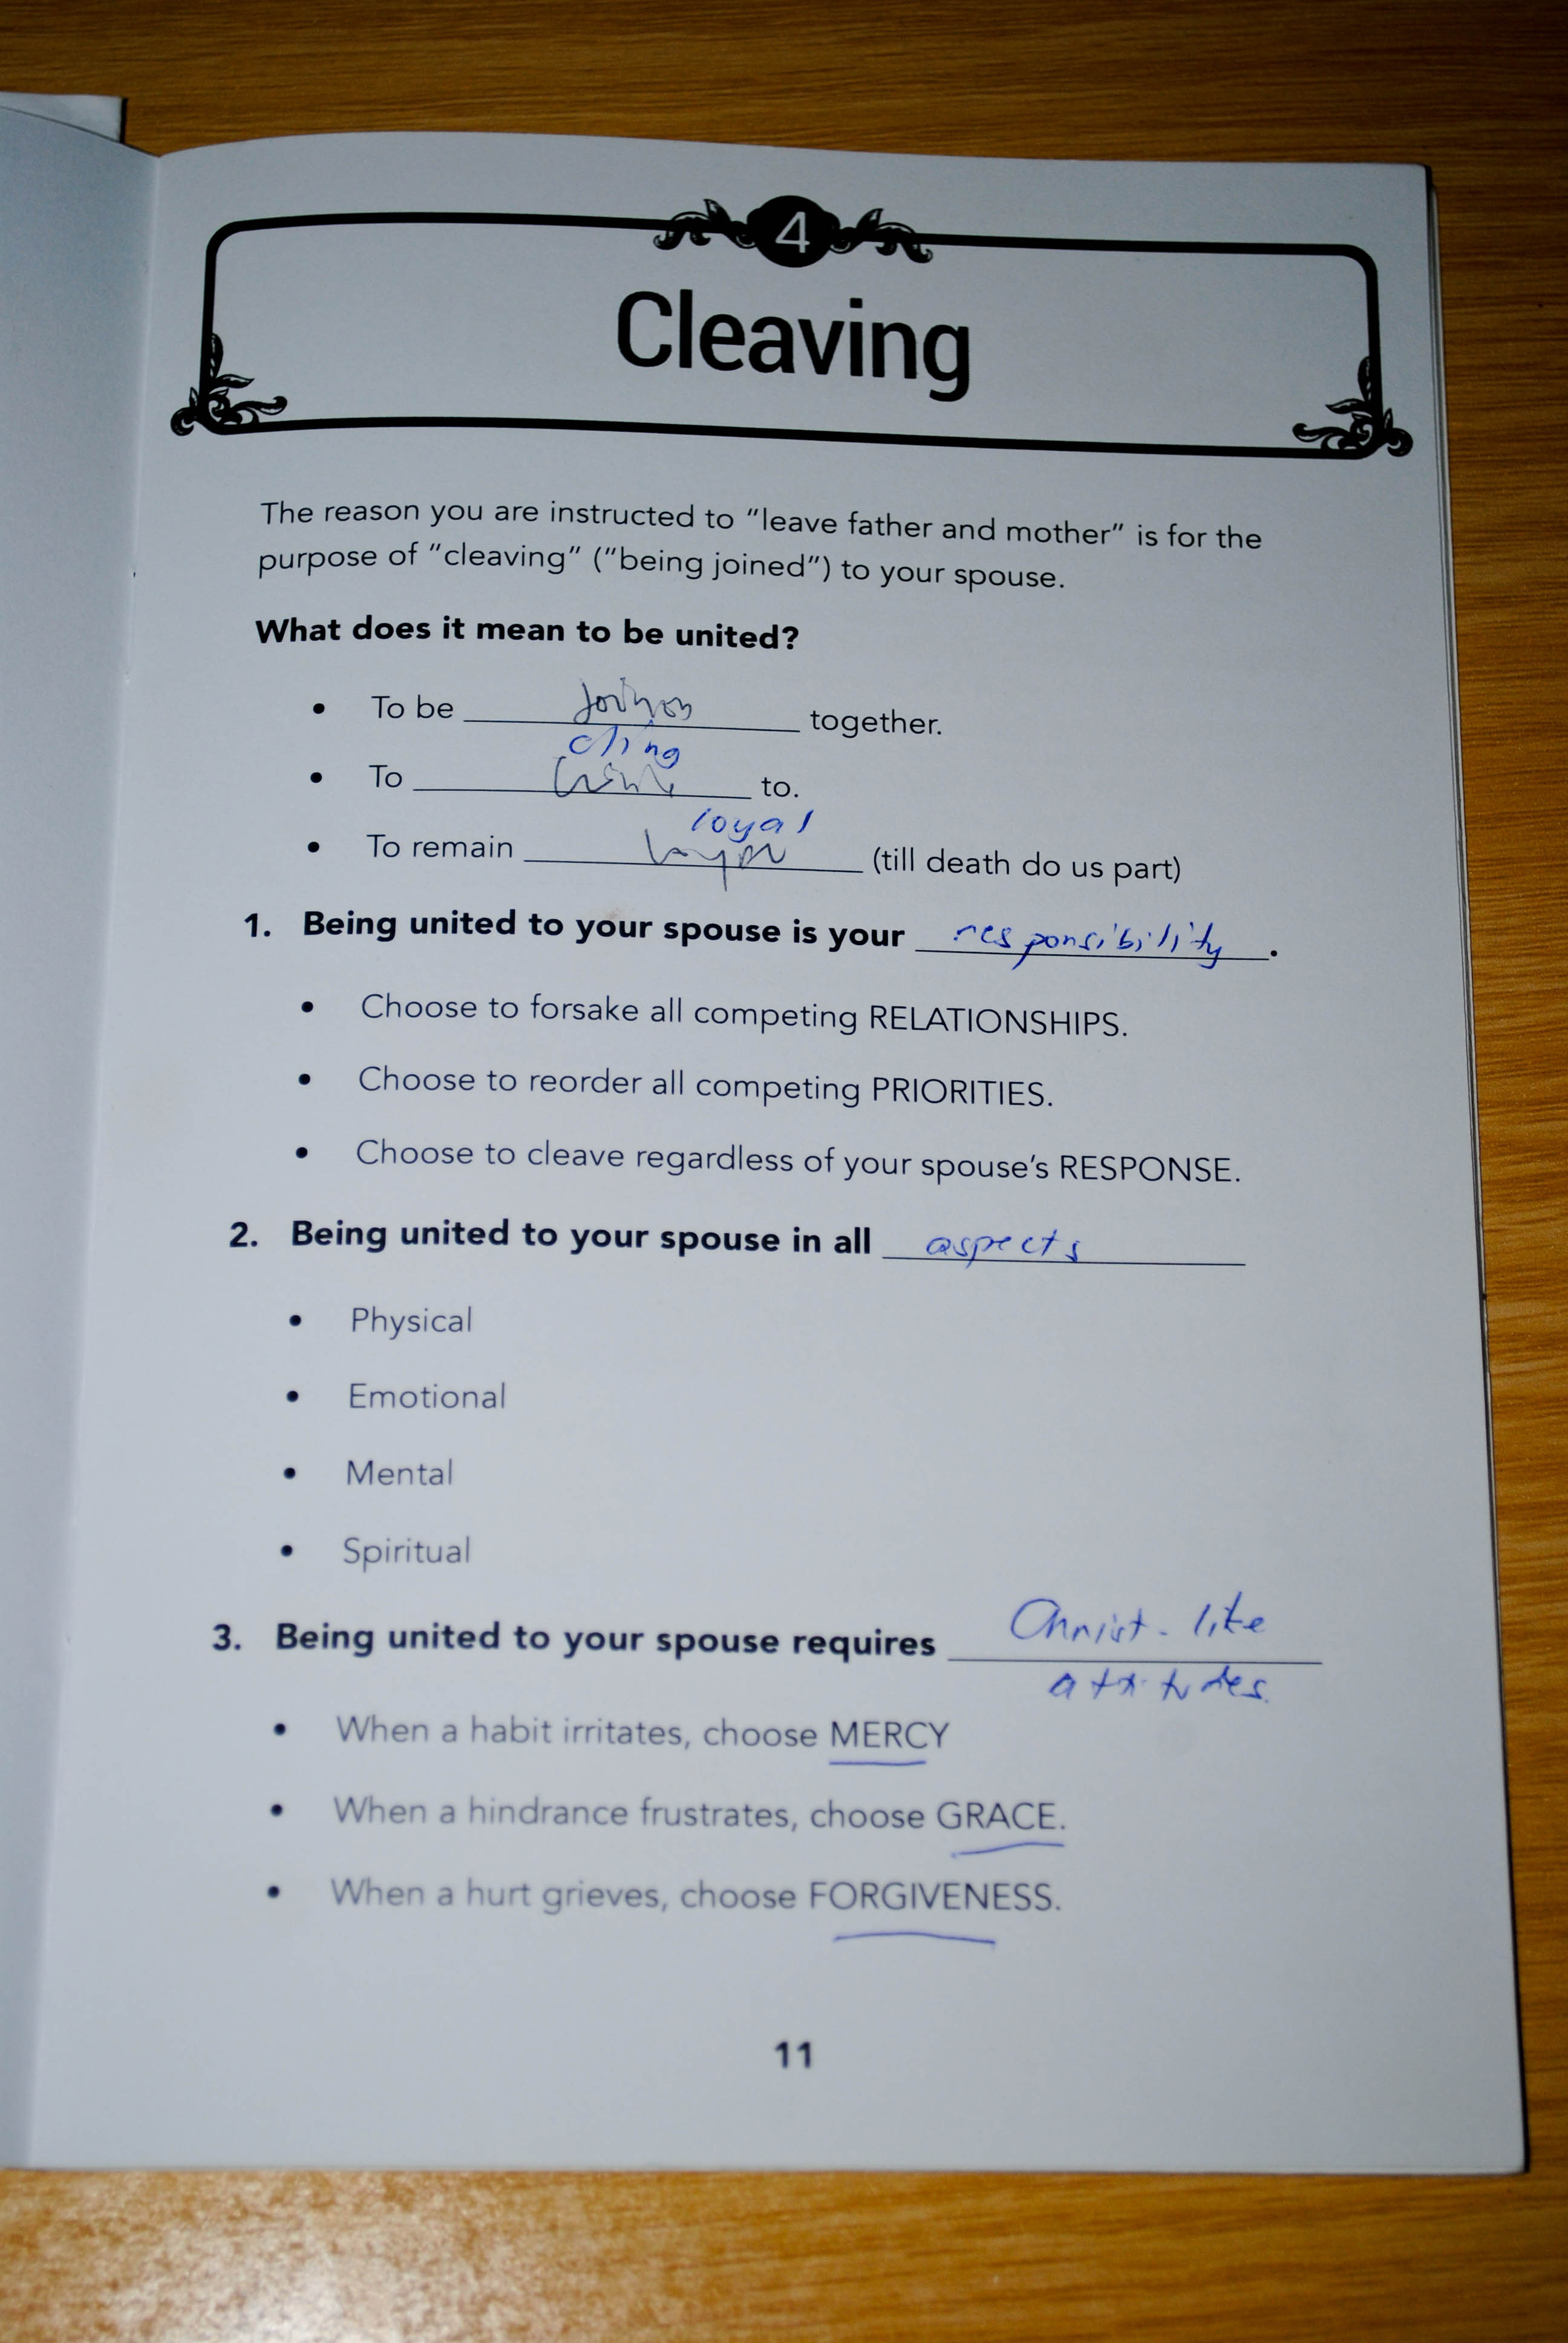 4
Cleaving
The reason you are instructed to "leave father and mother" is for the
purpose of "cleaving" ("being joined") to your spouse.
What does it mean to be united?
• To be ____ together.
cling
• To ____ to.
loyal
• To remain ____ (till death do us part)
1. Being united to your spouse is your responsibility.
• Choose to forsake all competing RELATIONSHIPS.
• Choose to reorder all competing PRIORITIES.
• Choose to cleave regardless of your spouse's RESPONSE.
2. Being united to your spouse in all aspects
• Physical
• Emotional
• Mental
• Spiritual
3. Being united to your spouse requires Christ-like
• When a habit irritates, choose MERCY
• When a hindrance frustrates, choose GRACE.
• When a hurt grieves, choose FORGIVENESS.
11